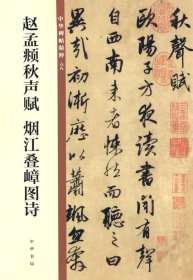 秋聲賦
歐陽子方夜讀書聞有聲
自西南来者悚然而聽之曰
異哉初淅瀝以蕭颯忽奔
中华碑帖精粹
赵孟頫秋声赋 烟江叠嶂图诗
中华书局